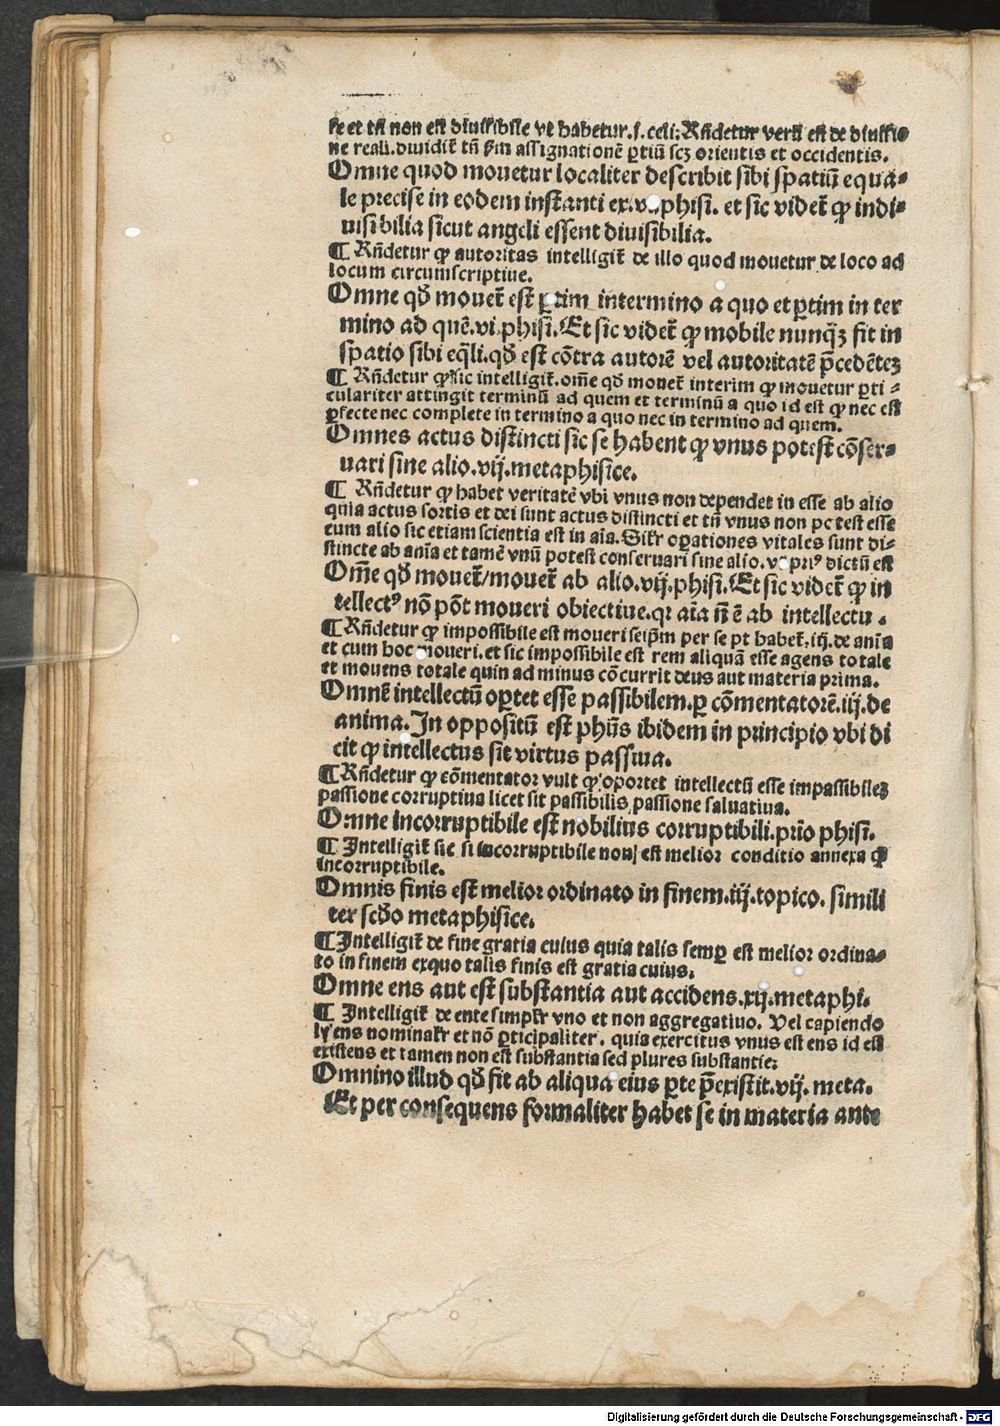 se et tñ non est diuisibile vt habetur .i. celi: Rñdetur verũ est de diuisio⸗
ne reali. diuidit̃ tñ ẜm assignationẽ ꝑtiũ scꝫ orientis et occidentis.
Omne quod mouetur localiter describit sibi spatiũ equa⸗
le precise in eodem instanti ex phisi. et sic videt̃ ꝙ indi⸗
uisibilia sicut angeli essent diuisibilia.
¶ Rñdetur ꝙ autoritas intelligit̃ de illo quod mouetur de loco ad
locum circumscriptiue.
Omne qď mouet̃ est ꝑtim in termino a quo et ꝑtim in ter
mino ad quẽ. vi phisi. Et sic videt̃ ꝙ mobile nunq̃ꝫ fit in
spatio sibi eq̃li. qď est cõtra autorẽ vel autoritatẽ p̃cedẽteꝫ
¶ Rñdetur ꝙ sic intelligit̃. om̃e qď mouet̃ interim ꝙ mouetur ꝑti⸗
culariter attingit terminũ ad quem et terminũ a quo id est ꝙ nec est
ꝑfecte nec complete in termino a quo nec in termino ad quem.
Omnes actus distincti sic se habent ꝙ vnus potest cõser⸗
uari sine alio. vij. metaphisice.
¶ Rñdetur ꝙ habet veritatẽ vbi vnus non dependet in esse ab alio
quia actus sortis et dei sunt actus distincti et tñ vnus non potest esse
cum alio sic etiam scientia est in aĩa. Sil̃r oꝑationes vitales sunt di⸗
stincte ab anĩa et tamẽ vnũ potest conseruari sine alio. dictũ est
Om̃e qď mouet̃/mouet̃ ab alio. vij. phisi. Et sic videt̃ ꝙ in
tellectꝰ nõ põt moueri obiectiue. qꝛ aĩa ñ ẽ ab intellectu.
¶ Rñdetur ꝙ impossibile est moueri seip̃m per se pt habet̃. iij. de anĩa
et cum hoc moueri. et sic impossibile est rem aliquã esse agens totale
et mouens totale quin ad minus cõcurrit deus aut materia prima.
Omnẽ intellectũ oꝑtet esse passibilem. ꝑ cõmentatorẽ. iij. de
anima. In oppositũ est phũs ibidem in principio vbi di
cit ꝙ intellectus sit virtus passiua.
¶ Rñdetur ꝙ cõmentator vult ꝙ oportet intellectũ esse impassibileꝫ
passione corruptiua licet sit passibilis passione saluatiua.
Omne incorruptibile est nobilius corruptibili. prĩo phisi.
¶ Intelligit̃ sic si incorruptibile non est melior conditio annexa ꝙ̃
incorruptibile.
Omnis finis est melior ordinato in finem. iij. topico. simili
ter scďo metaphisice.
¶ Intelligit̃ de fine gratia cuius quia talis semꝑ est melior ordina⸗
to in finem exquo talis finis est gratia cuius.
Omne ens aut est substantia aut accidens. xij. metaphi.
¶ Intelligit̃ de ente simpl̃r vno et non aggregatiuo. Vel capiendo
ly ens nominal̃r et nõ ꝑticipaliter. quia exercitus vnus est ens id est
existens et tamen non est substantia sed plures substantie:
Omnino illud qď fit ab aliqua eius ꝑte p̃existit. vij. meta.
Et per consequens formaliter habet se in materia ante
Digitalisierung gefördert durch die Deutsche Forschungsgemeinschaft - DFG